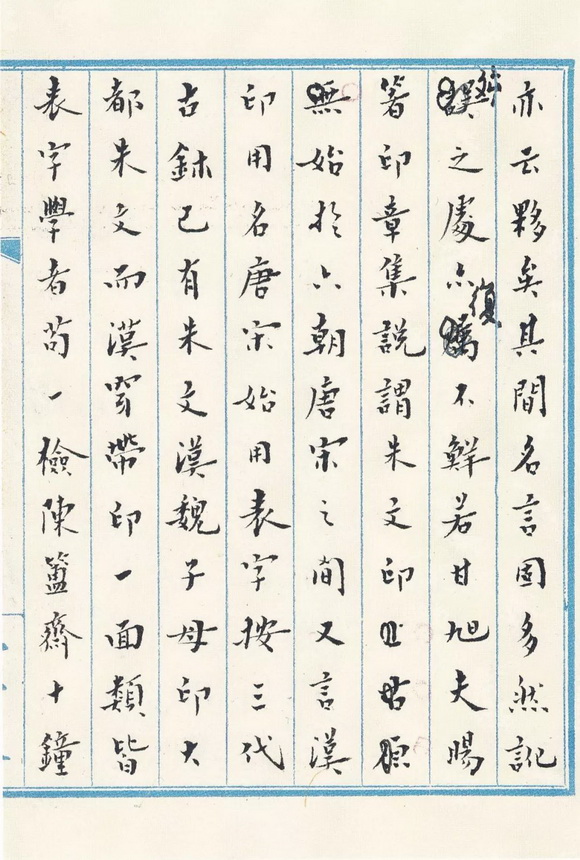 亦云夥矣其間名言固多然訛
舛之處亦復不鮮若甘旭夫暘
箸印章集說謂朱文印古原
無始於六朝唐宋之間又言漢
印用名唐宋始用表字按三代
古鉥已有朱文漢魏子母印大
都朱文而漢穿帶印一面類皆
表字學者苟一檢陳簠齋十鐘